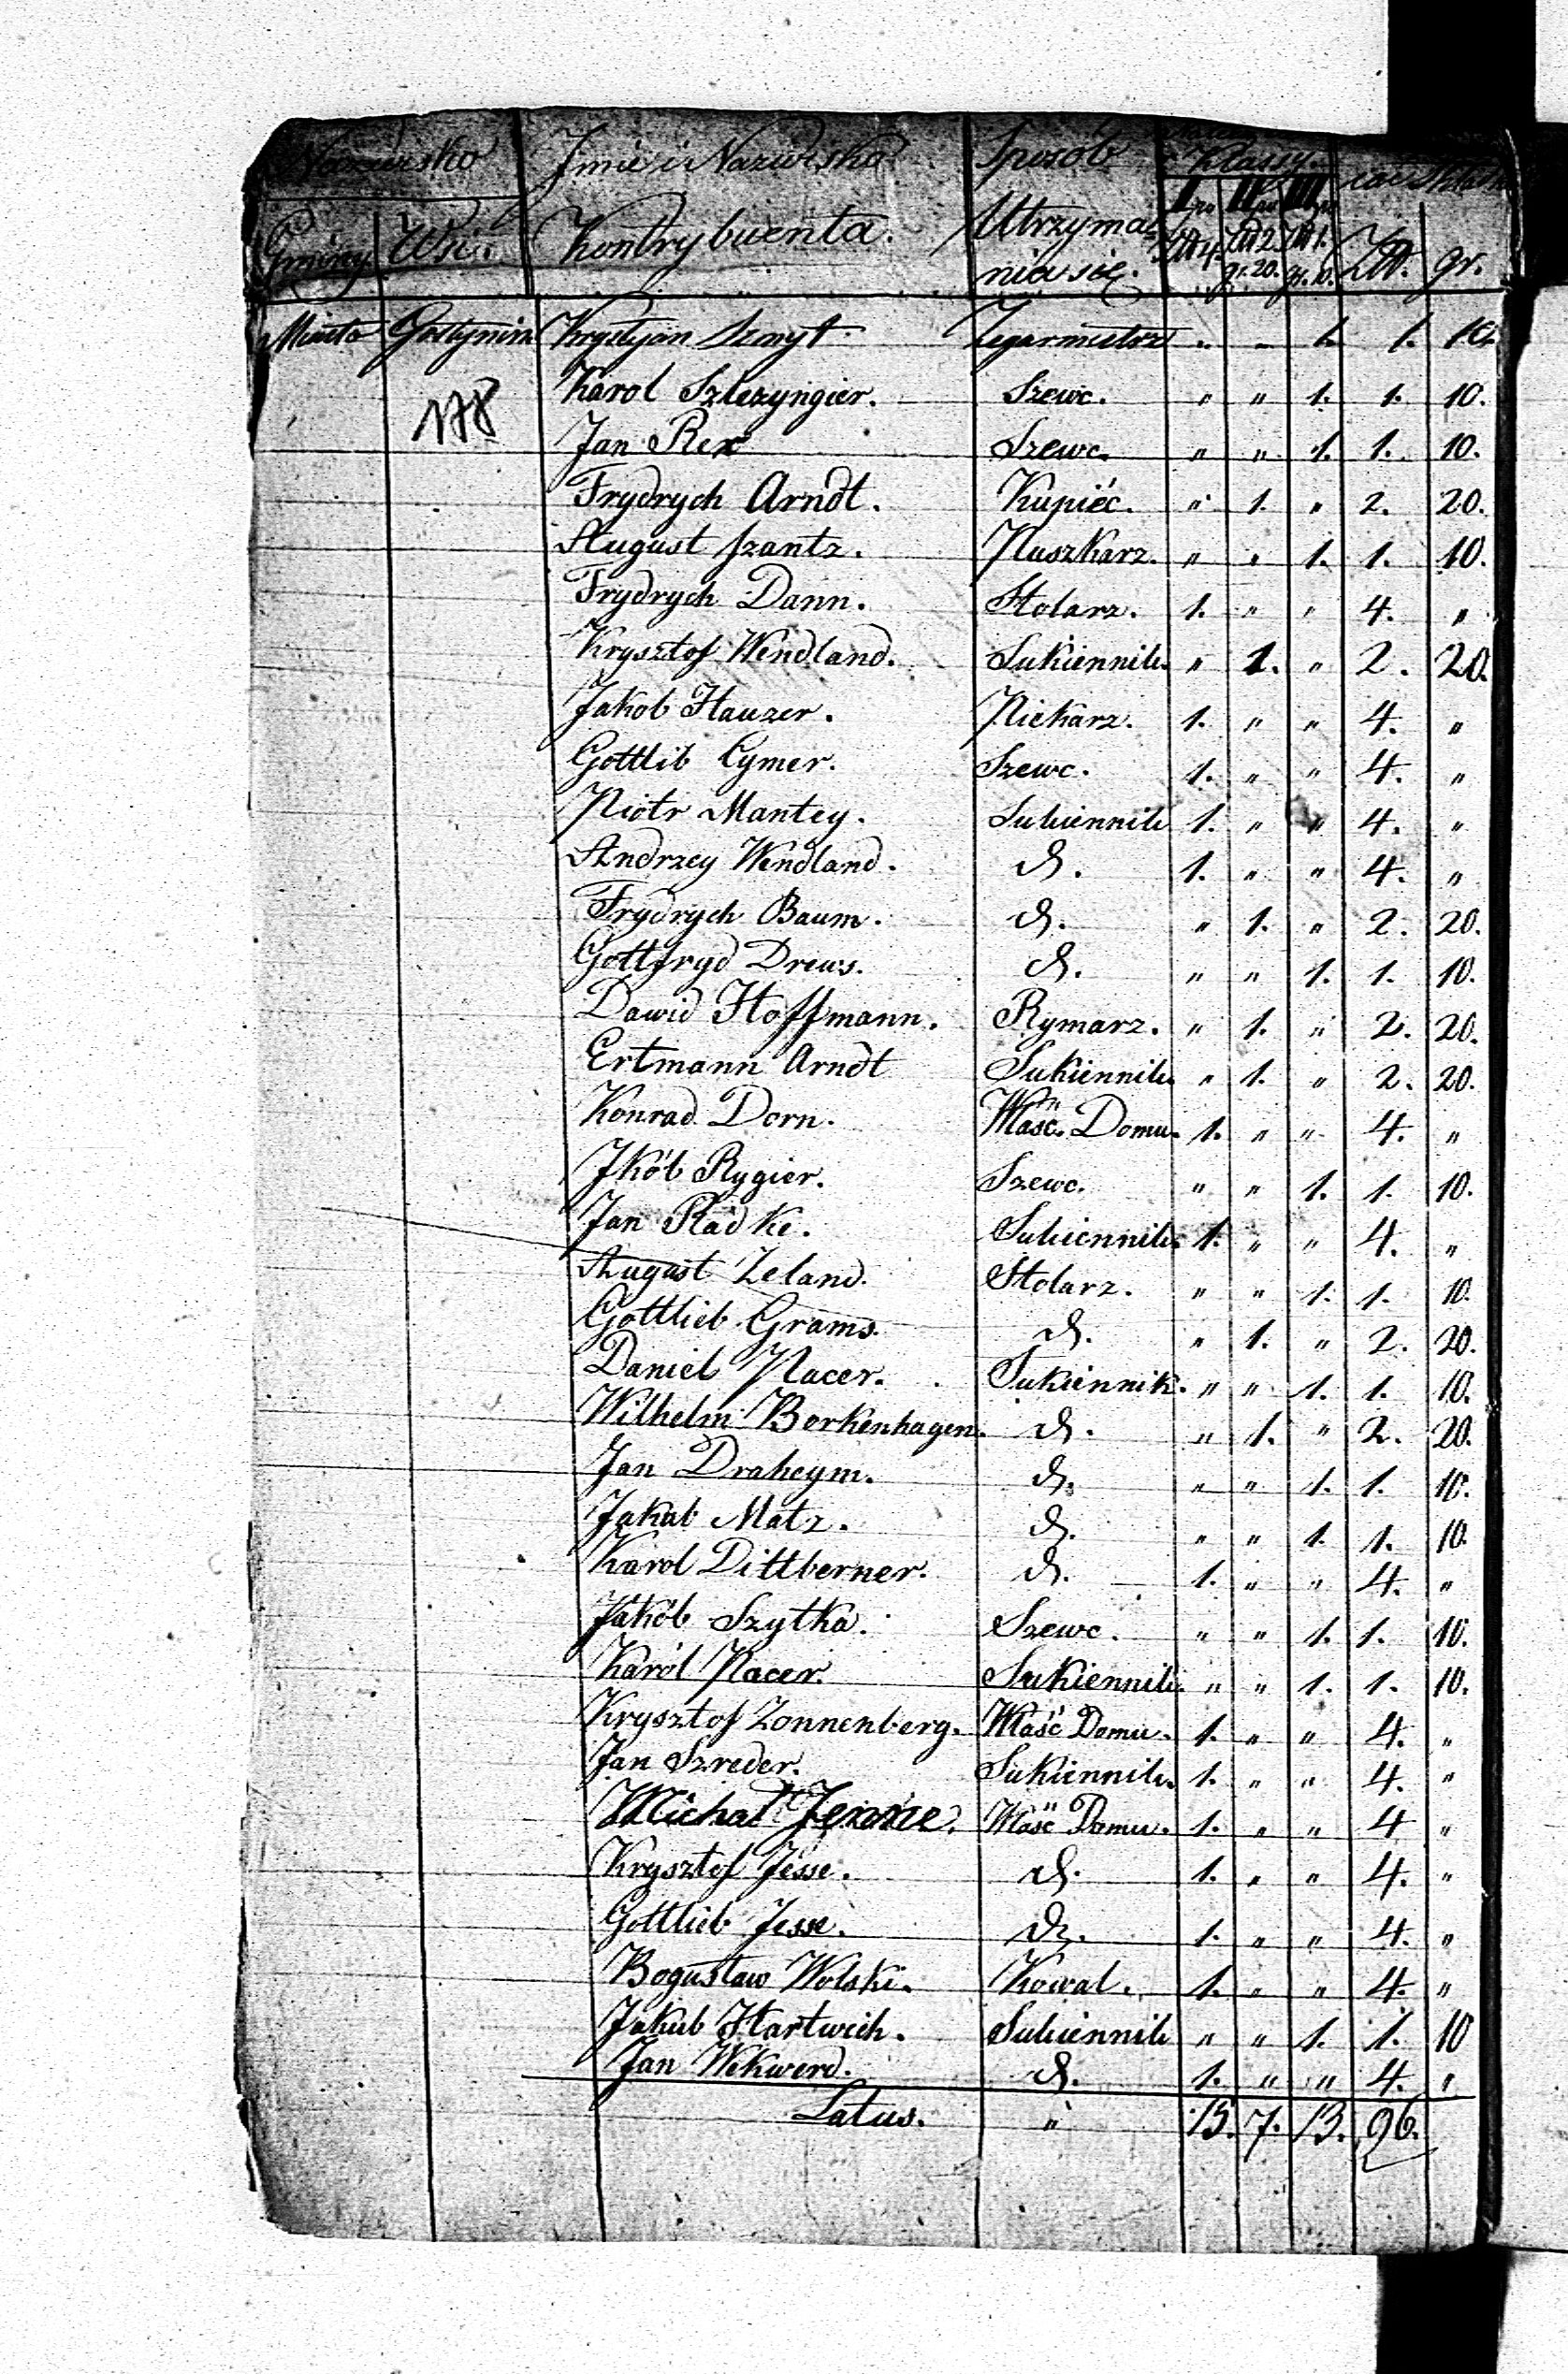 Nazwisko Jmie i Nazwisko Sposób Klassy.
Gminy Wsi. Kontrybuenta. Utrzyma- I po II po III po
nia się. Złł 4. Złł 2. gr. 20. Złł 1. gr. 10. Złł. gr.
Miasto Gostynin Krystyan Szmyt. Zegarmistrz " " 1. 1. 10.
178 Karol Szlezyngier. Szewc. " " 1. 1. 10.
Jan Rex Szewc. " " 1. 1. 10.
Frydrych Arndt. Kupiéc. " 1. " 2. 20.
August Szantz. Puszkarz. " " 1. 1. 10.
Frydrych Dann. Stolarz. 1. " " 4. "
Krysztof Wendland. Sukiennik. " 1. " 2. 20.
Jakob Hauzer. Piekarz. 1. " " 4. "
Gottlib Cymer. Szewc. 1. " " 4. "
Piotr Mantey. Sukiennik 1. " " 4. "
Andrzey Wendland. d. 1. " " 4. "
Frydrych Baum. d. " 1. " 2. 20.
Gottfryd Drews. d. " " 1. 1. 10.
Dawid Hoffmann. Rymarz. " 1. " 2. 20.
Ertmann Arndt Sukiennik. " 1. " 2. 20.
Konrad Dorn. Właść. Domu. 1. " " 4. "
Jkób Rygier. Szewc. " " 1. 1. 10.
Jan Radke. Sukiennik. 1. " " 4. "
August Zeland. Stolarz. " " 1. 1. 10.
Gottlieb Grams. d. " 1. " 2. 20.
Daniel Pacer. Sukiennik. " " 1. 1. 10.
Wilhelm Borkenhagen. d. " 1. " 2. 20.
Jan Draheym. d. " " 1. 1. 10.
Jakab Matz. d. " " 1. 1. 10.
Karol Dittberner. d. 1. " " 4. "
Jakób Szytka. Szewc. " " 1. 1. 10.
Karól Pacer. Sukiennik. " " 1. 1. 10.
Krysztof Zonnenberg. Właść Domu. 1. " " 4. "
Jan Szreder. Sukiennik. 1. " " 4. "
Michał Jenne. Właść Domu. 1. " " 4 "
Krysztof Jesse. d. 1. " " 4. "
Gottlieb Jesse. d. 1. " " 4. "
Bogusław Wolski. Kowal. 1. " " 4. "
Jakub Hartwich. Sukiennik " " 1. 1. 10
Jan Wekwerd. d. 1. " " 4. "
Latus. " 15. 7. 13. 96.